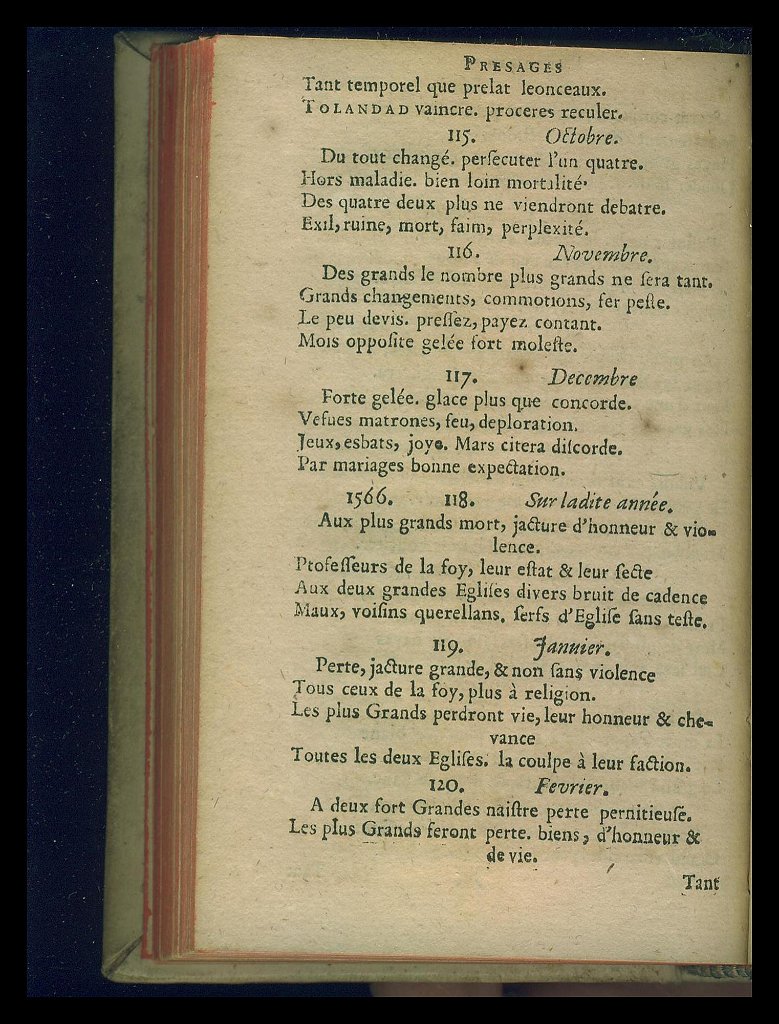 PRESAGES
Tant temporel que prelat leonceaux.
TOLANDAD vaincre. proceres reculer.
115. Octobre.
Du tout changé. perſecuter l'un quatre.
Hors maladie. bien loin mortalité.
Des quatre deux plus ne viendront debatre.
Exil, ruine, mort, faim, perplexité.
116. Novembre.
Des grands le nombre plus grands ne ſera tant.
Grands changements, commotions, fer peſte.
Le peu devis. preſſez, payez contant.
Mois oppoſite gelée fort moleſte.
117. Decembre
Forte gelée. glace plus que concorde.
Vefues matrones, feu, deploration.
Jeux, esbats, joye. Mars citera diſcorde.
Par mariages bonne expectation.
1566. 118. Sur ladite année.
Aux plus grands mort, jacture d'honneur & vio-
lence.
Profeſſeurs de la foy, leur eſtat & leur ſecte
Aux deux grandes Egliſes divers bruit de cadence
Maux, voiſins querellans. ſerfs d'Egliſe ſans teſte.
119. Januier.
Perte, jacture grande, & non ſans violence
Tous ceux de la foy, plus à religion.
Les plus Grands perdront vie, leur honneur & che-
vance
Toutes les deux Egliſes. la coulpe à leur faction.
120. Fevrier.
A deux fort Grandes naiſtre perte pernitieuſe.
Les plus Grands feront perte. biens, d'honneur &
de vie.
Tant